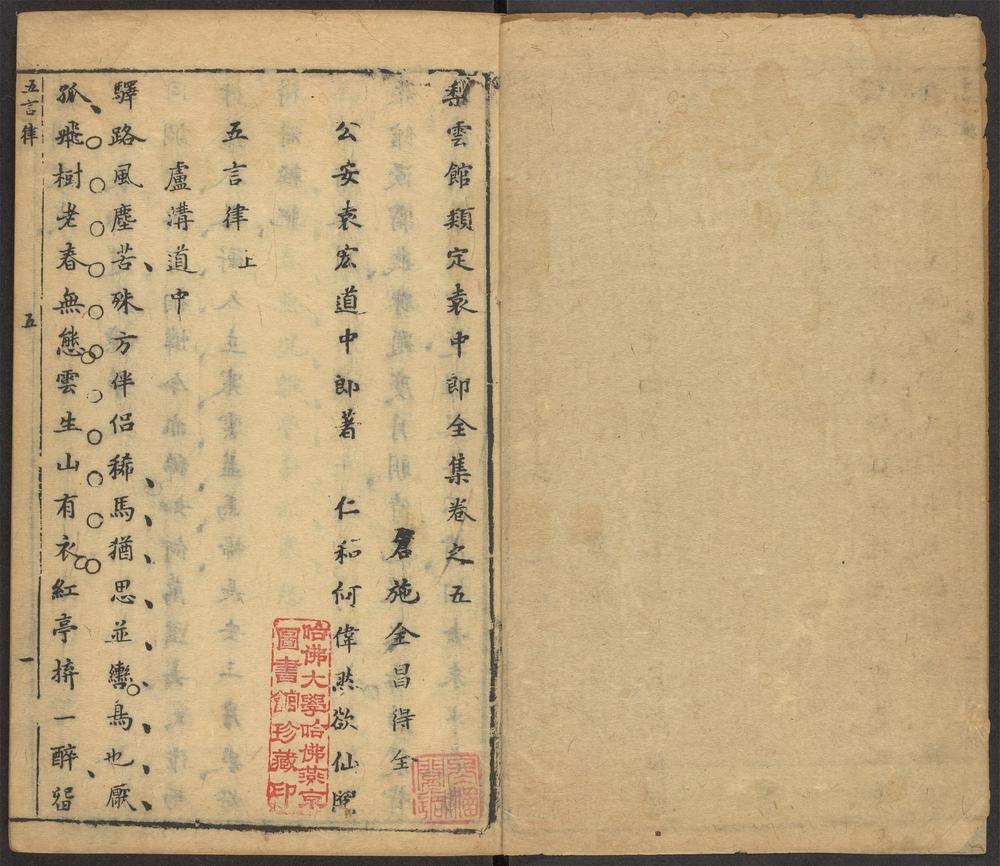 梨雲館類定袁中郎全集卷之五
施全昌得全
公安袁宏道中郎著 仁和何偉然欲仙閱
五言律上
盧溝道中
驛路風塵苦殊方伴侶稀馬猶思並轡鳥也厭
孤飛樹老春無態雲生山有衣紅亭拚一醉留
五言律
五
一
哈佛大學哈佛燕京
圖書館珍藏印